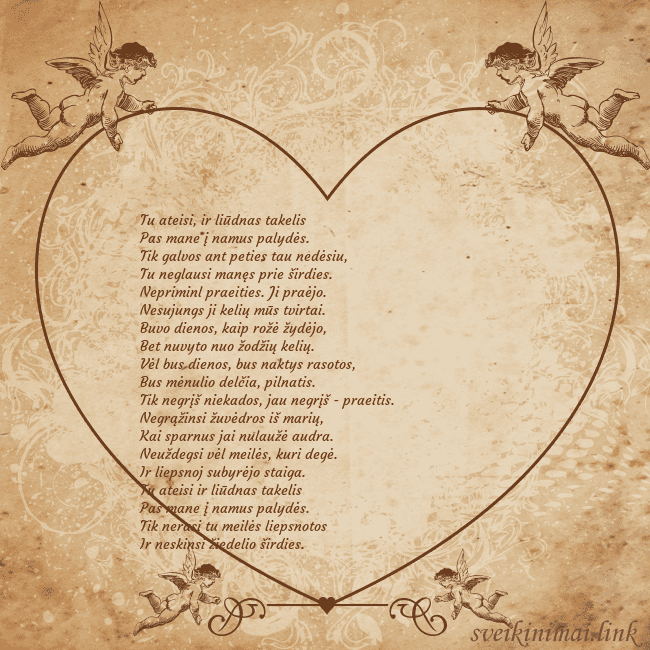 Tu ateisi, ir liūdnas takelis
Pas mane į namus palydės.
Tik galvos ant peties tau nedėsiu,
Tu neglausi manęs prie širdies.
Nepriminl praeities. Ji praėjo.
Nesujungs ji kelių mūs tvirtai.
Buvo dienos, kaip rožė žydėjo,
Bet nuvyto nuo žodžių kelių.
Vėl bus dienos, bus naktys rasotos,
Bus mėnulio delčia, pilnatis.
Tik negrįš niekados, jau negrįš - praeitis.
Negrąžinsi žuvėdros iš marių,
Kai sparnus jai nulaužė audra.
Neuždegsi vėl meilės, kuri degė.
Ir liepsnoj subyrėjo staiga.
Tu ateisi ir liūdnas takelis
Pas mane į namus palydės.
Tik nerasi tu meilės liepsnotos
Ir neskinsi žiedelio širdies.
sveikinimai.link